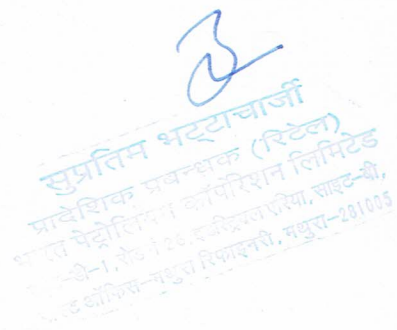 सुप्रतिम भट्टाचार्जी
प्रादेशिक प्रबन्धक (रिटेल)
भारत पेट्रोलियम कॉर्पोरेशन लिमिटेड
डी-1, इंडस्ट्रियल एरिया, साइट-बी,
ऑफिस-मथुरा रिफाइनरी, मथुरा-281005